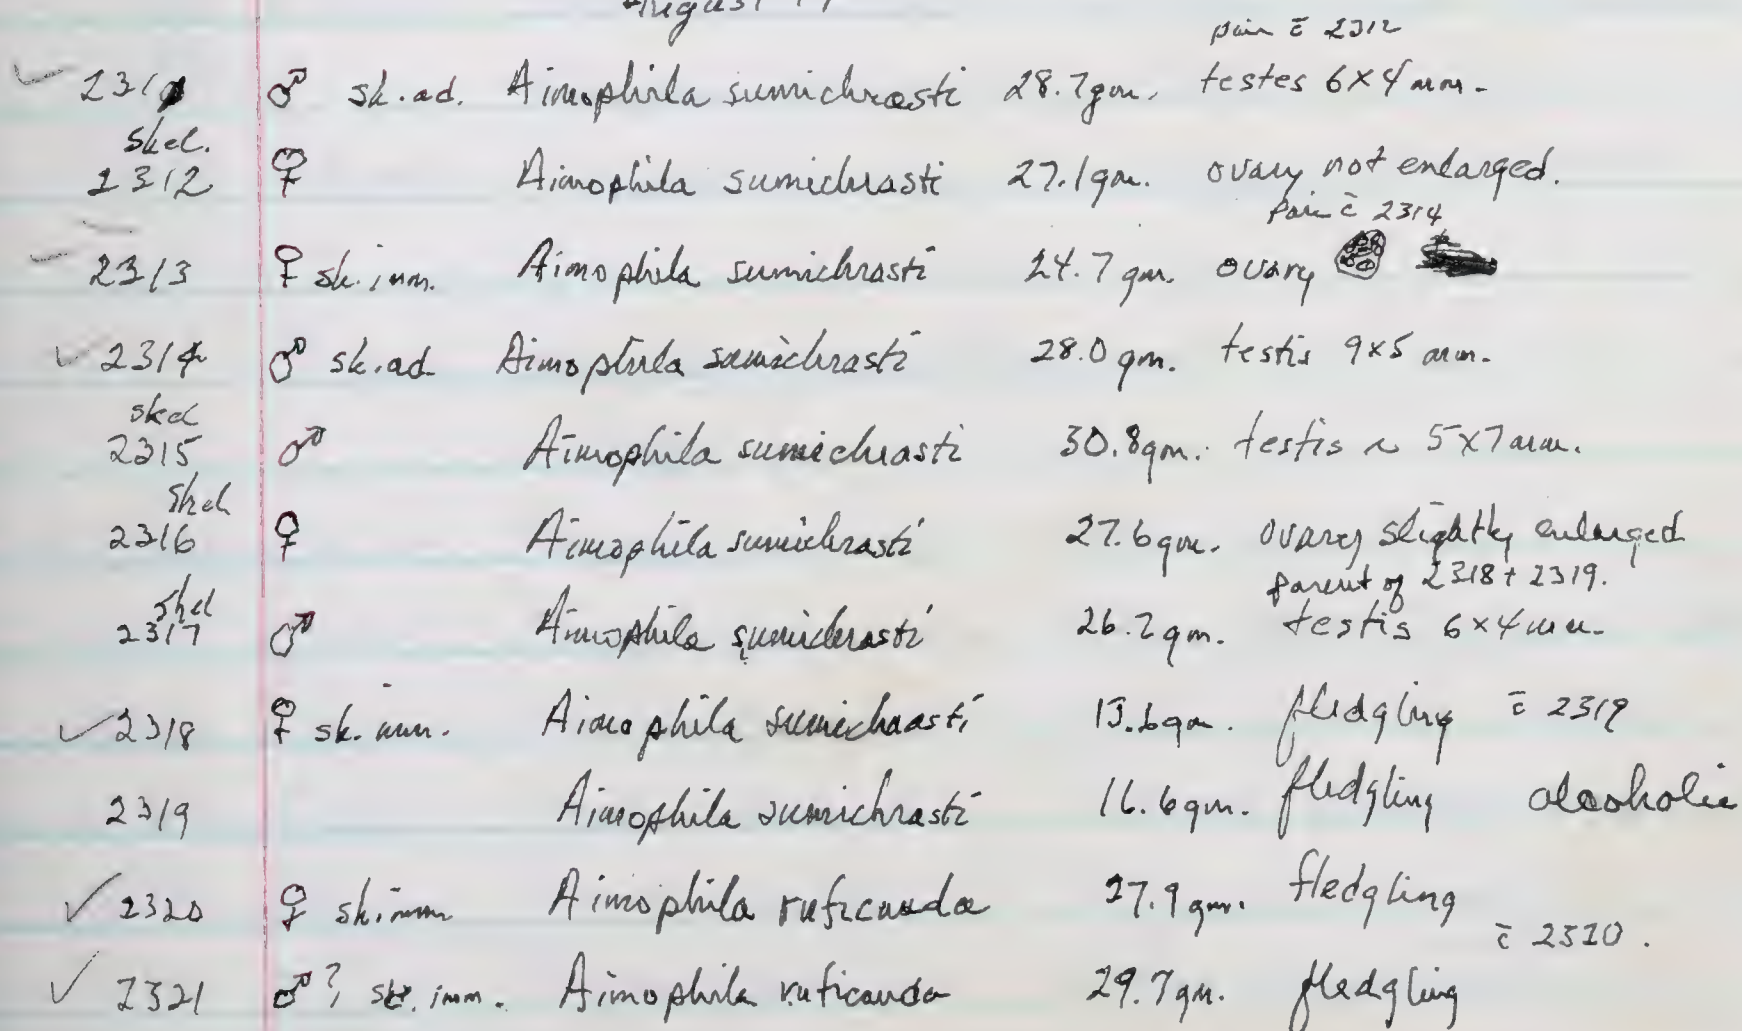 August
pair c̄ 2312
2311 ♂ sk. ad. Aimophila sumichrasti 28.7 gm. testes 6x4 mm.
skel.
2312 ♀ Aimophila sumichrasti 27.1 gm. ovary not enlarged.
pair c̄ 2314
2313 ♀ sk. imm. Aimophila sumichrasti 24.7 gm. ovary
2314 ♂ sk. ad. Aimophila sumichrasti 28.0 gm. testis 9x5 mm.
skel
2315 ♂ Aimophila sumichrasti 30.8 gm. testis ~ 5x7 mm.
skel
2316 ♀ Aimophila sumichrasti 27.6 gm. ovary slightly enlarged
parent of 2318 + 2319.
skel
2317 ♂ Aimophila sumichrasti 26.2 gm. testis 6x4 mm.
2318 ♀ sk. imm. Aimophila sumichrasti 15.6 gm. fledgling c̄ 2319
2319 Aimophila sumichrasti 16.6 gm. fledgling alcoholic
2320 ♀ sk imm Aimophila ruficauda 27.9 gm. fledgling
c̄ 2320.
2321 ♂?, sk. imm. Aimophila ruficauda 29.7 gm. fledgling